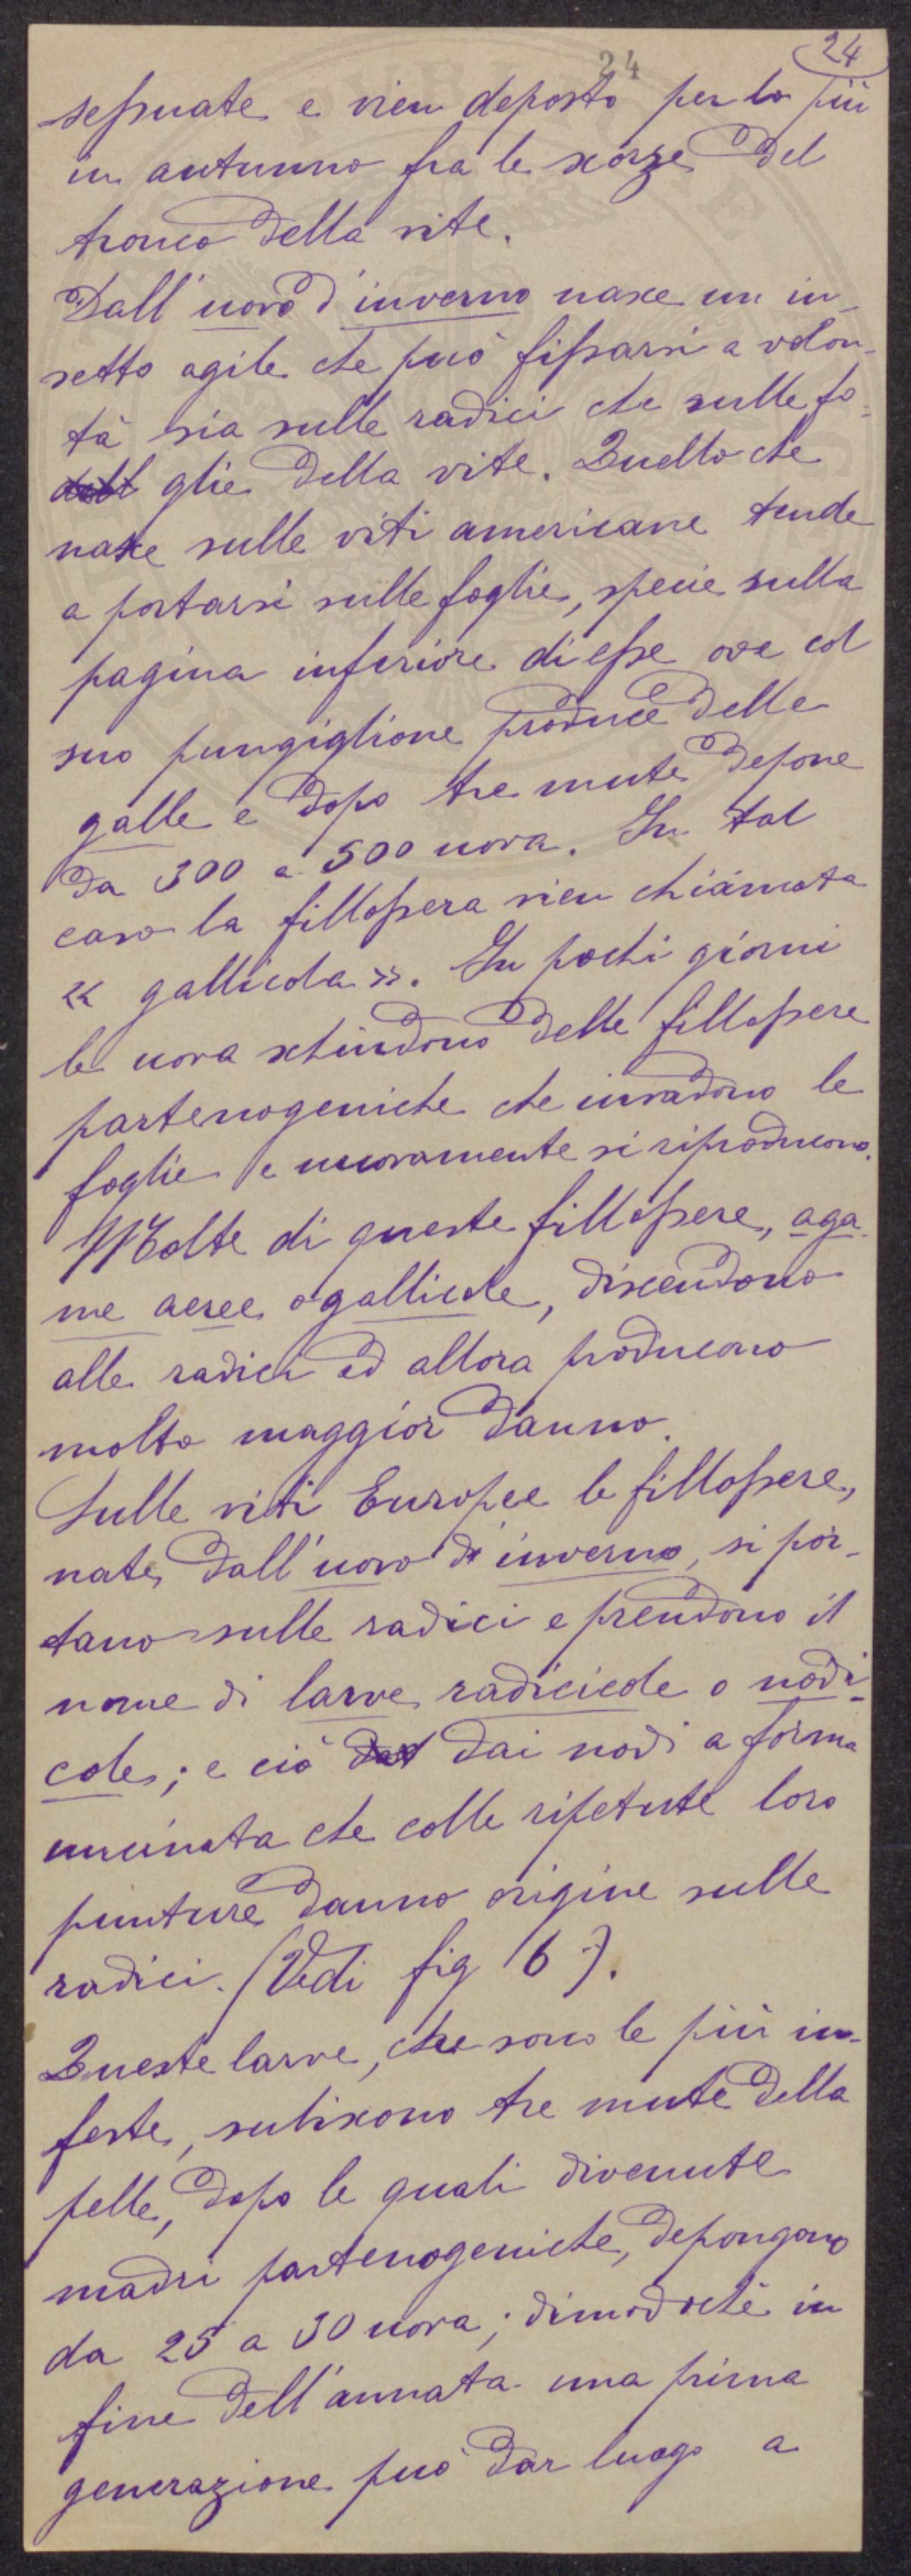 24
24
sessuate e vien deposto per lo più
in autunno fra le scorze del
tronco della vite.
Dall'uovo d'inverno nasce un in-
setto agile che può fissarsi a volon-
tà sia sulle radici che sulle fo-
glie della vite. Quello che
nasce sulle viti americane tende
a portarsi sulle foglie, specie sulla
pagina inferiore di esse ove col
suo pungiglione produce delle
galle e dopo tre mute depone
da 300 a 500 uova. In tal
caso la fillossera vien chiamata
« gallicola ». In pochi giorni
le uova schiudono delle fillossere
partenogeniche che invadono le
foglie e nuovamente si riproducono.
Molte di queste fillossere, aga-
me aeree o gallicole, discendono
alle radici ed allora producono
molto maggior danno.
Sulle viti Europee le fillossere,
nate dall'uovo d'inverno, si por-
tano sulle radici e prendono il
nome di larve radicicole o nodi-
cole; e ciò dai nodi a forma
uncinata che colle ripetute loro
punture danno origine sulle
radici. (Vedi fig 6).
Queste larve, che sono le più in-
feste, subiscono tre mute della
pelle, dopo le quali divenute
madri partenogeniche, depongono
da 25 a 30 uova; dimodochè in
fine dell'annata una prima
generazione può dar luogo a